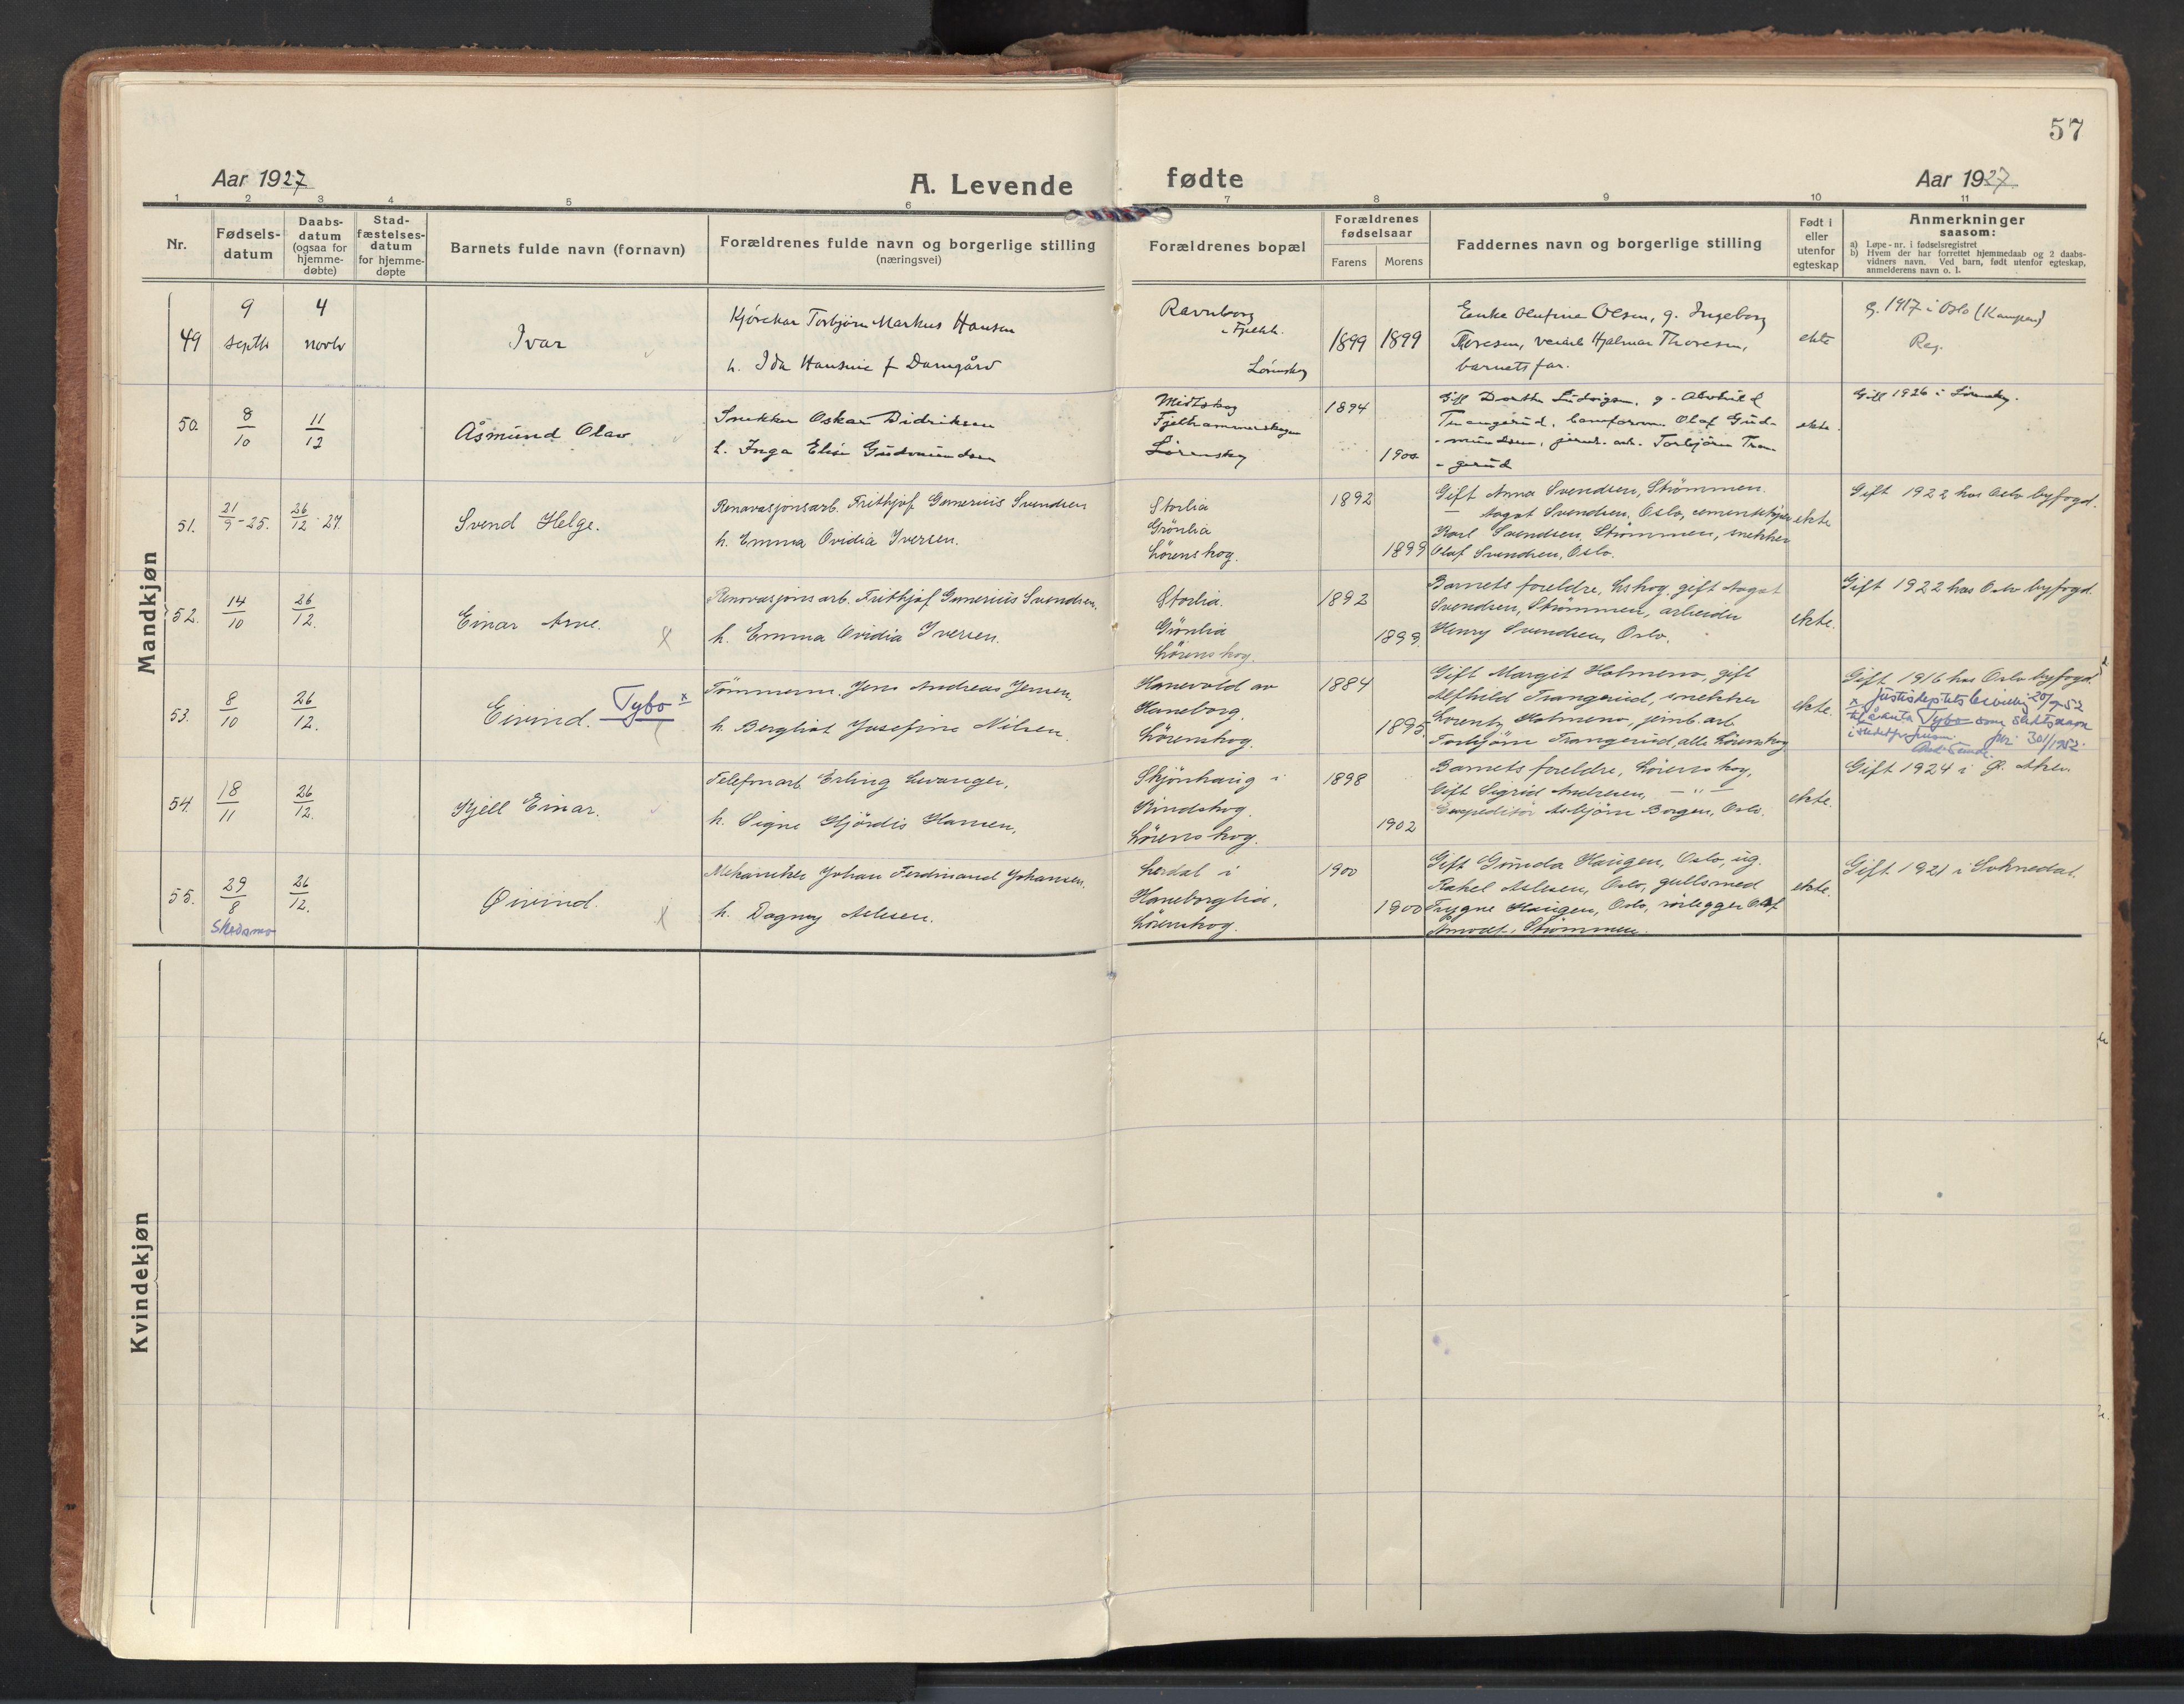 57
Aar 1927
A. Levende
fødte
Aar 1927
1 2 3 4 5 6 7 8 9 10 11
Nr.
Fødsels-
datum
Daabs-
datum
(ogsaa for
hjemme-
døbte)
Stad-
fæstelses-
datum
for hjemme-
døpte
Barnets fulde navn (fornavn)
Forældrenes fulde navn og borgerlige stilling
(næringsvei)
Forældrenes bopæl
Forældrenes
fødselsaar
Farens Morens
Faddernes navn og borgerlige stilling
Født i
eller
utenfor
egteskap
Anmerkninger
saasom:
a) Løpe-nr. i fødselsregistret
b) Hvem der har forrettet hjemmedaab og 2 daabs-
vidners navn. Ved barn, født utenfor egteskap,
anmelderens navn o. l.
Mandkjøn
49
9
septb
4
novbr
Ivar
Kjørekar Torbjørn Markus Hansen
h. Ida Hansine f Damgård
Ravnborg
i Fjellh.
Lørenskog
1899 1899
Enke Olufine Olsen, g. Ingeborg
Thoresen, Hjalmar Thoresen,
barnets far.
ekte
g. 1917 i Oslo (Kampen)
Reg.
50.
8
10
11
12
Åsmund Olav
Snekker Oskar Didriksen
h. Inga Elise Gudmundsen
Midtskog
Fjellhammerskogen
Lørenskog
1894
1900
Gift Dorthe Ludvigsen, g. Alvhild
Trangerud, Olaf Gud-
-mundsen, Torbjørn Tran-
-gerud
ekte.
Gift 1926 i Lørenskog.
51.
21
9 - 25.
26
12 - 27.
Svend Helge.
Renovasjonsarb. Frithjof Gunerius Svendsen
h. Emma Ovidia Iversen.
Storlia
Grönlia
Lörenskog.
1892
1899
Gift Anna Svendsen, Strömmen.
— Aagot Svendsen, Oslo,
Karl Svendsen, Strömmen, snekker
Olaf Svendsen, Oslo.
ekte
Gift 1922 hos Oslo byfogd.
52.
14
10
26
12.
Einar Arne.
x
Renovasjonsarb. Frithjof Gunerius Svendsen.
h. Emma Ovidia Iversen.
Storlia.
Grönlia
Lörenskog.
1892
1899.
Barnets foreldre, Lskog, gift Aagot
Svendsen, Strömmen, arbeider
Henry Svendsen, Oslo.
ekte.
Gift 1922 hos Oslo byfogd.
53.
8
10
26
12.
Eivind. Tybo x
Tömmerm. Jens Andreas Jensen,
h. Bergliot Josefine Nilsen.
Hanevold av
Haneborg.
Lörenskog.
1884
1895.
Gift Margit Holmeno, gift
Alfhild Trangerud, snekker
Lorentz Holmeno, jernb. arb.
Torbjörn Trangerud, alle Lörenskog
ekte.
Gift 1916 hos Oslo byfogd.
x Justisdeptets bevilling 20/9 52
til å anta Tybo som slektsnavn
jnr. 301/1952.
54.
18
11
26
12.
Kjell Einar.
Telefonarb. Erling Levanger,
h. Signe Hjördis Hansen,
Skjönhaug i
Rundskog.
Lörenskog.
1898
1902
Barnets foreldre, Lörenskog,
Gift Sigrid Andresen, — " —
Ekspeditör Asbjörn Borgen, Oslo.
ekte.
Gift 1924 i Ø. Aker.
55.
29
8
Skedsmo
26
12.
Øivind.
x
Mekaniker Johan Ferdinand Johansen.
h. Dagny Aslesen.
Lerdal i
Haneborglia,
Lörenskog.
1900
1900
Gift Gunda Haugen, Oslo, ug.
Rakel Aslesen, Oslo, gullsmed
Trygve Haugen, Oslo, rörlegger Olaf
Amodt, Strömmen.
ekte.
Gift 1921 i Soknedal.
Kvindekjøn